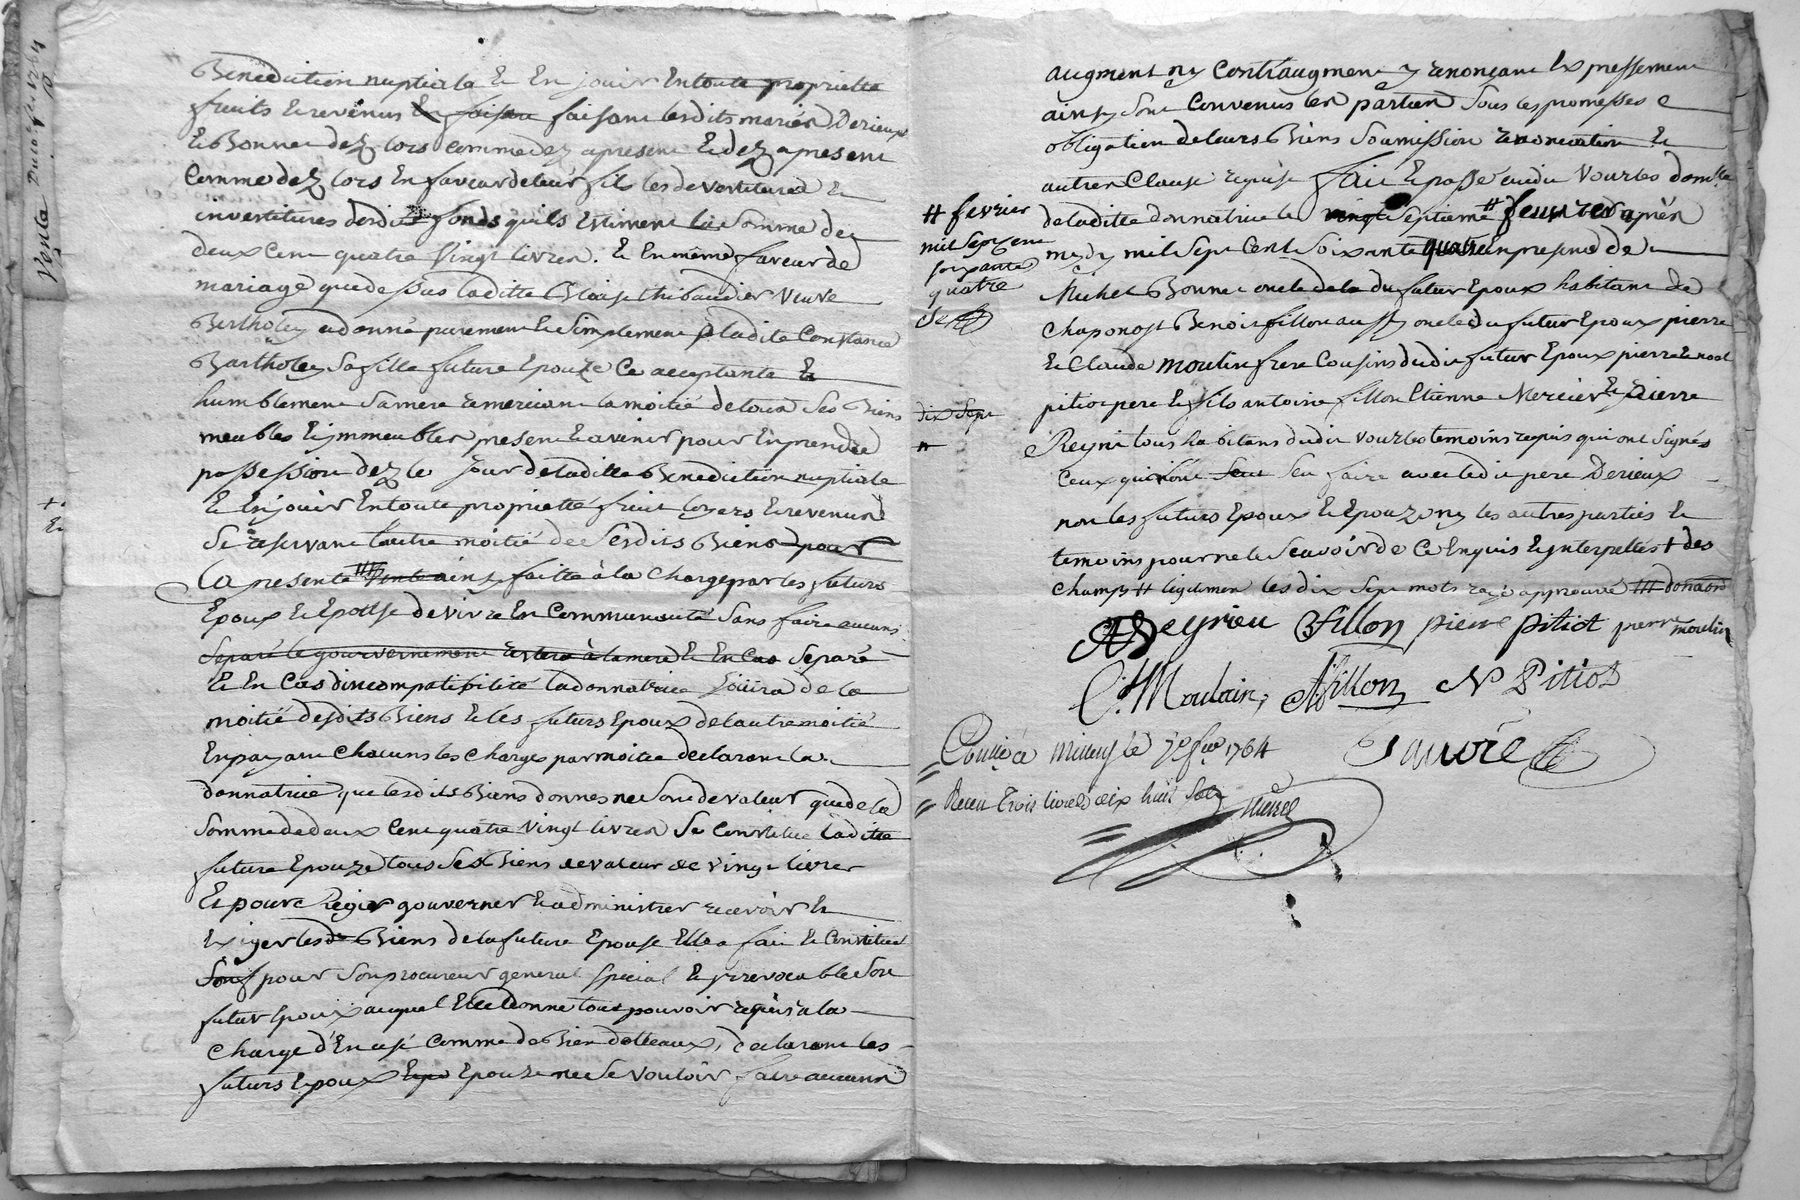 Benediction nuptiale Et En jouir En toute proprietté
fruits Et revenus Et faisan faisant lesdits mariés Derieux
Et Bonnet dez lors comme dez apresent Et dez apresent
Comme dez lors En faveur de leur fils les devestitures Et
investitures desdits fonds quils Estiment la somme de
deux cent quatre vingt livres. Et En même faveur de
mariage que dessus laditte Blaise thibaudier veuve
Bertholey a donné purement Et simplement à ladite Constance
Bartholey sa fille future Epouze Ce acceptante Et
humblement sa mere remerciant la moitié de tous ses Biens
meubles Et immeubles present Et avenir pour En prendre
possession dez le jour de laditte Benediction nuptiale
Et En jouir En toute proprietté fruit loyers Et revenus
se reservant l'autre moitié de sesdits Biens pour
la presente vente ainsy faitte à la Charge par les futurs
Epoux Et Epouse de vivre En Communauté sans faire aucuns
separé le gouvernement restera à la mere Et En Cas separé
Et En Cas dincompatibilité la donnatrice jouira de la
moitié desdits Biens Et les futurs Epoux de l'autre moitié
En payant chacuns les charges par moitié declarant la
donnatrice que lesdits Biens donnes ne sont de valeur que de la
somme de deux Cent quatre vingt livres se Constitue laditte
future Epouze tous ses Biens de valeur de vingt livres
Et pour Regir gouverner Et administrer recevoir Et
Exiger lesdts Biens de la future Epouse Elle a fait Et Constitué
pour son procureur general special Et irrevocable son
futur Epoux auquel Elle donne tout pouvoir requis a la
Charge d'En usé Comme de Bien dotteaux, declarant les
futurs Epoux Epouze ne se vouloir faire aucuns
# fevrier
mil sept cent
soixante
quatre
dix sept
#
augment ny Contraugment y renonçant Expressement
ainsy sont Convenus les parties sous les promesses
obligation de leurs Biens soumission renonciation Et
autres Clause requise fait Et passé audit Vourles domlle
de laditte donnatrice le vingt septieme # feuvrier après
mydy mil sept Cent soixante quatre En presence de
Michel Bonnet oncle de la du futur Epoux habitant de
Chaponost Benoit fillon aussy oncle du futur Epoux pierre
Et Claude moulin frere Cousins dudit futur Epoux pierre Et noel
pitiot pere Et fils antoine fillon Etienne Mercier Et pierre
Reynÿ tous habitans dudit vourles temoins requis qui ont signés
Ceux qui l'ont seut seu faire avec ledit pere Derieux
non les futurs Epoux Et Epouze ny les autres parties Et
temoins pour ne le scavoir de Ce Enquis Et interpellés + des
Champs # ligitimen les dix sept mots rayé approuvé ### donaõn
Deyrieu Bfillon pierre pitiot pierre moulin
C. Moulain, Afillon N Pitiot
Conllé à Millery le 7e fev 1764
Receu trois livres dix huit sols